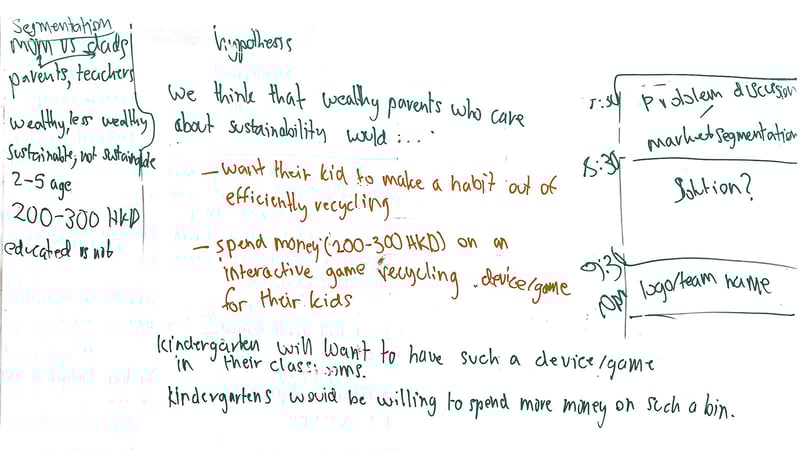 Segmentation
mom vs dads
parents, teachers
wealthy, less wealthy
sustainable, not sustainable
2-5 age
200-300 HKD
educated vs not
hypothesis
we think that wealthy parents who care
about sustainability would:...
- want their kid to make a habit out of
efficiently recycling
- spend money (200-300 HKD) on an
interactive game recycling device/game
for their kids
kindergarten will want to have such a device/game
in their classrooms.
kindergartens would be willing to spend more money on such a bin.
problem discussion
market segmentation
8:30
Solution?
9:30
logo/team name